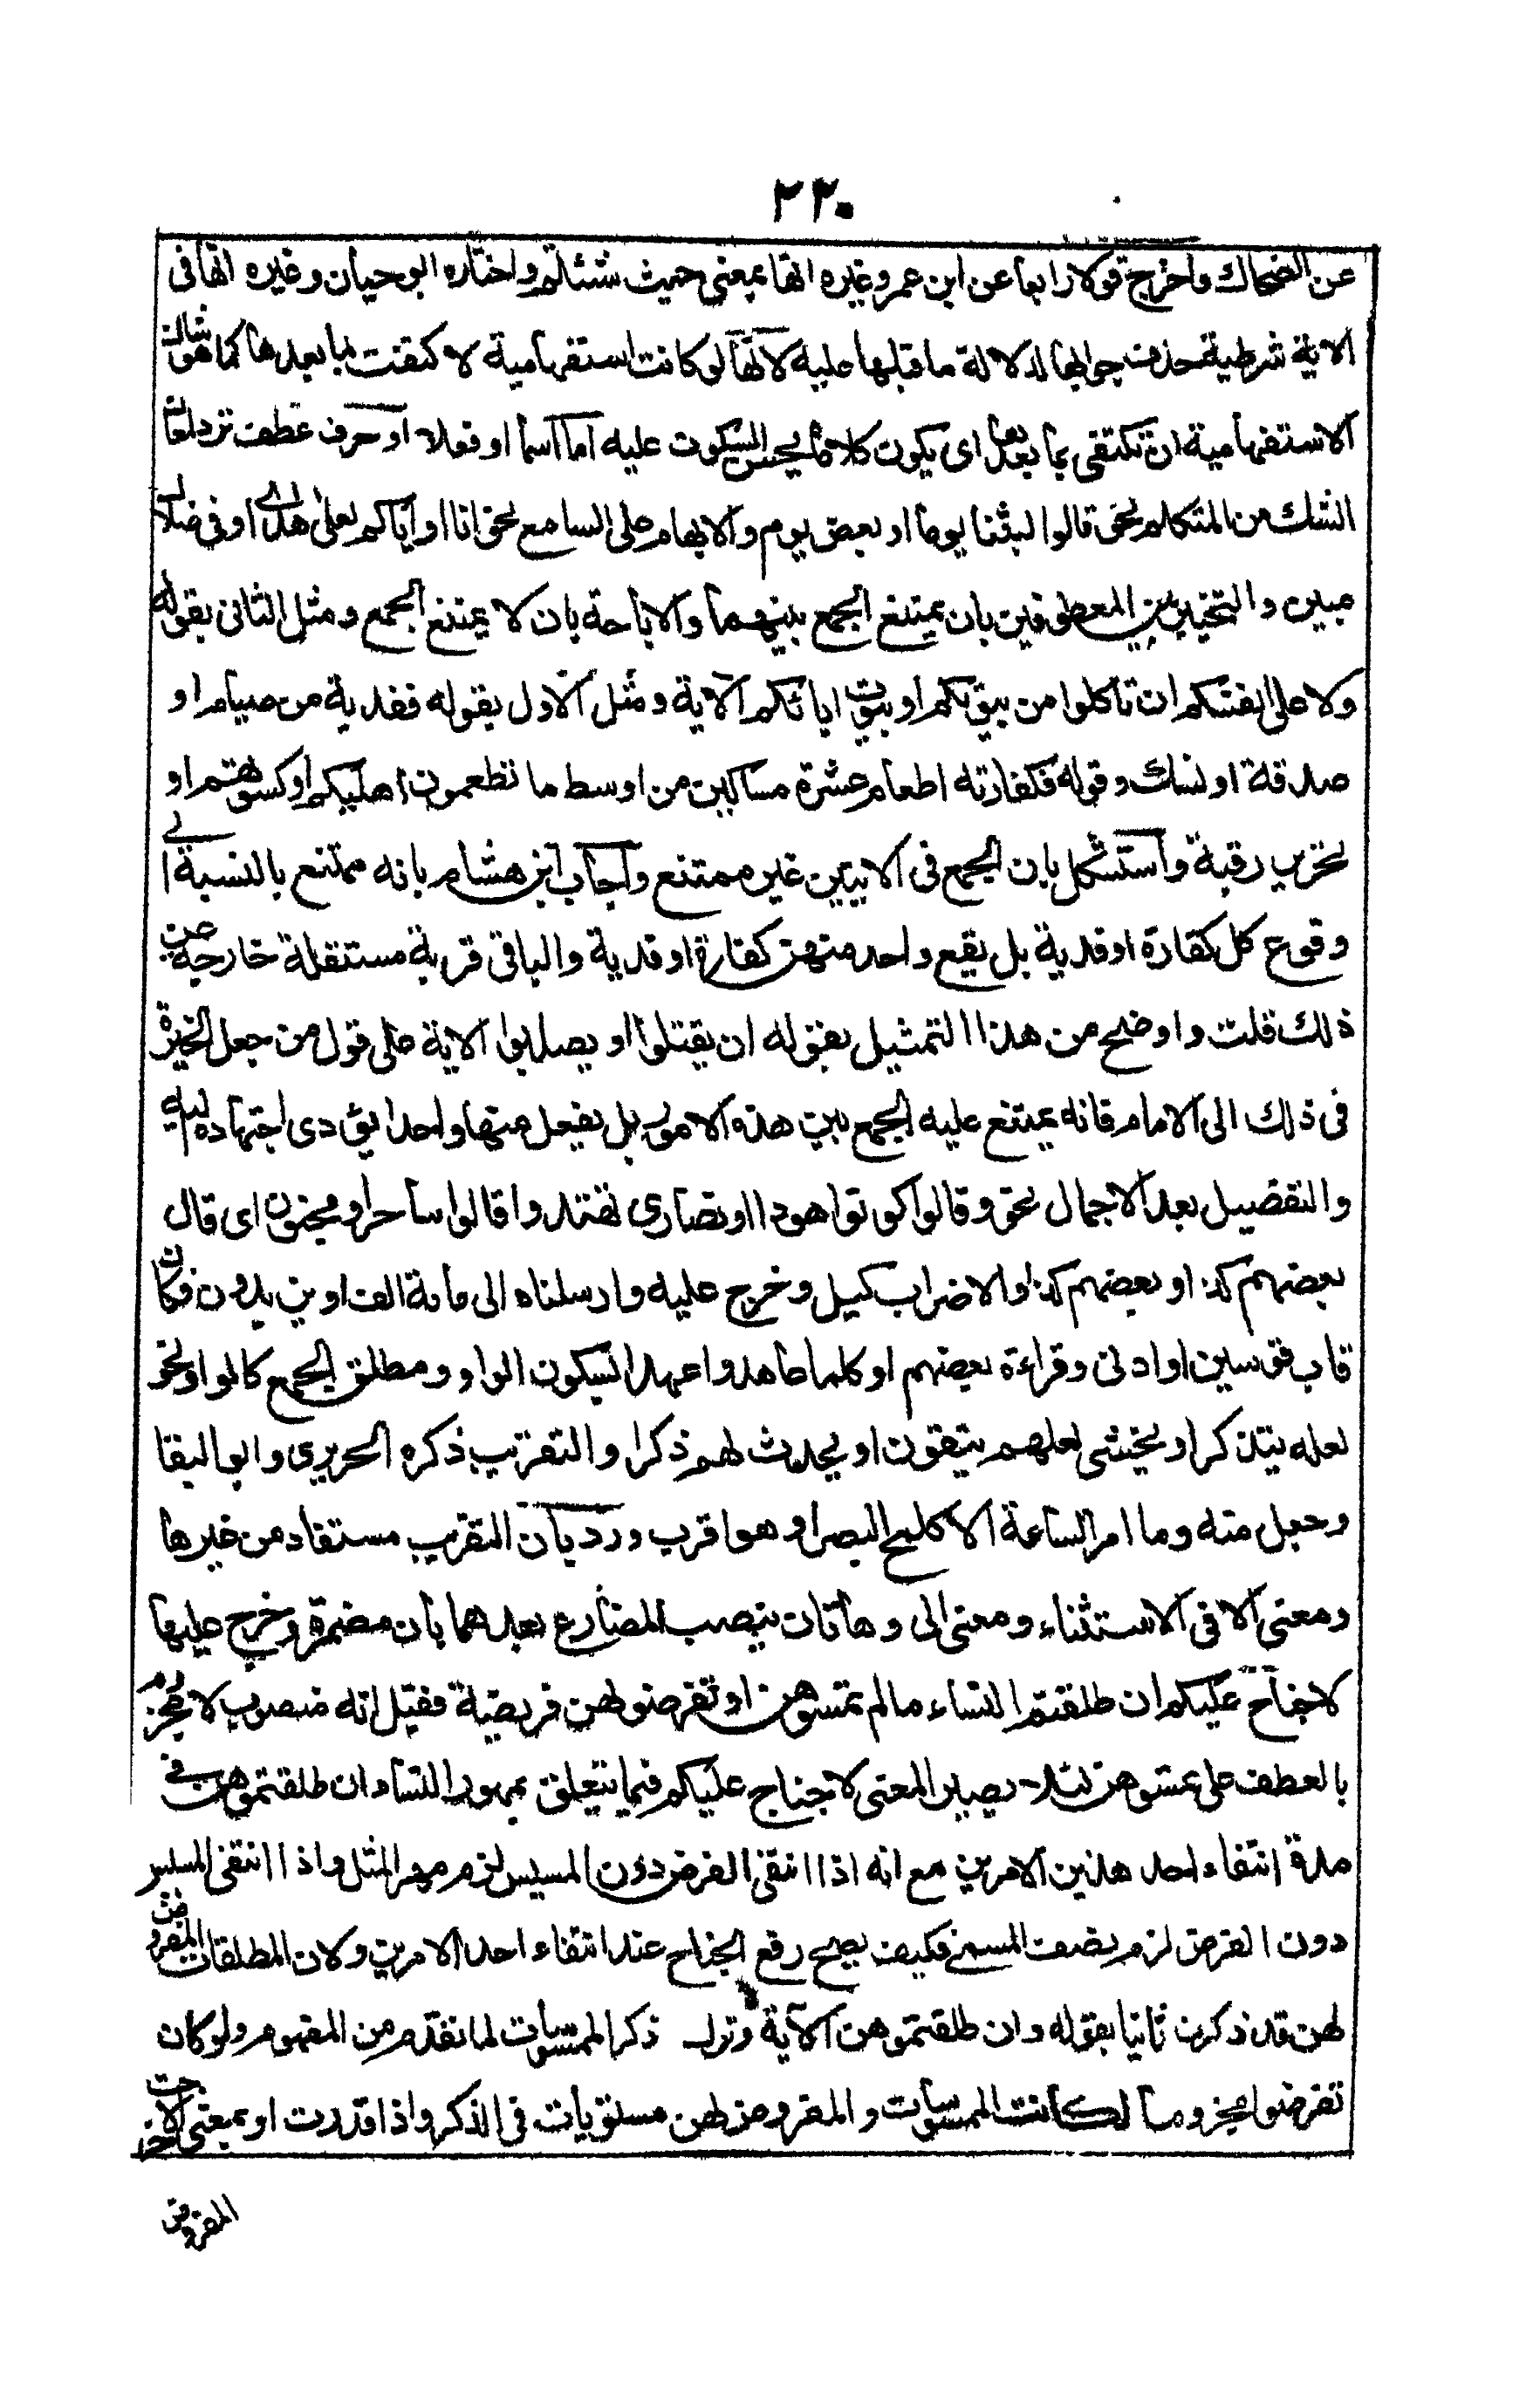 ٢٢٠
عن الضحاك واخرج قولا رابعا عن ابن عمر وغيره انها بمعنى حيث شئتم واختاره ابو حيان وغيره انها فى
الاية شرطية حذف جوابها لدلالة ما قبلها عليه لانها لو كانت استفهامية لاكتفت بما بعدها كما هو شان
الاستفهامية ان تكتفى بما بعدها اى يكون كلاما يحسن السكوت عليه اما اسما او فعلا او حرف عطف ترد لمعان
الشك من المتكلم نحو قالوا لبثنا يوما او بعض يوم والابهام على السامع نحو انا او اياكم لعلى هدى او فى ضلال
مبين والتخيير بين المعطوفين بان يمتنع الجمع بينهما والاباحة بان لا يمتنع الجمع ومثل الثانى بقوله
ولا على انفسكم ان تاكلوا من بيوتكم او بيوت ابائكم الاية ومثل الاول بقوله ففدية من صيام او
صدقة او نسك وقوله فكفارته اطعام عشرة مساكين من اوسط ما تطعمون اهليكم او كسوتهم او
تحرير رقبة واستشكل بان الجمع فى الايتين غير ممتنع واجاب ابن هشام بانه ممتنع بالنسبة الى
وقوع كل كفارة او فدية بل يقع واحد منهن كفارة او فدية والباقى قربة مستقلة خارجة عن
ذلك قلت واوضح من هذا التمثيل بقوله ان يقتلوا او يصلبوا الاية على قول من جعل الخيرة
فى ذلك الى الامام فانه يمتنع عليه الجمع بين هذه الامور بل يفعل منها واحدا يؤدى اجتهاده اليه
والتفصيل بعد الاجمال نحو وقالوا كونوا هودا او نصارى تهتدوا قالوا ساحر او مجنون اى قال
بعضهم كذا وبعضهم كذا والاضراب كبل وخرج عليه وارسلناه الى مأية الف او يزيدون فكان
قاب قوسين او ادنى وقراءة بعضهم او كلما عاهدوا عهدا بسكون الواو ومطلق الجمع كالواو نحو
لعله يتذكر او يخشى لعلهم يتقون او يحدث لهم ذكرا والتقريب ذكره الحريرى وابو البقا
وجعل منه وما امر الساعة الا كلمح البصر او هو اقرب ورد بان التقريب مستفاد من غيرها
ومعنى الا فى الاستثناء ومعنى الى وهاتان ينصب المضارع بعدهما بان مضمرة وخرج عليها
لا جناح عليكم ان طلقتم النساء ما لم تمسوهن او تفرضوا لهن فريضة فقيل انه منصوب لا مجزوم
بالعطف على تمسوهن لئلا يصير المعنى لا جناح عليكم فيما يتعلق بمهور النساء ان طلقتموهن فى
مدة انتفاء احد هذين الامرين مع انه اذا انتفى الفرض دون المسيس لزم مهر المثل واذا انتفى المسيس
دون الفرض لزم نصف المسمى فكيف يصح رفع الجناح عند انتفاء احد الامرين ولان المطلقات المفروض
لهن قد ذكرن ثانيا بقوله وان طلقتموهن الاية وترك ذكر الممسوسات لما تقدم من المفهوم ولو كان
تفرضوا مجزوما لكانت الممسوسات والمفروض لهن مستويات فى الذكر واذا قدرت او بمعنى الا خرجت
المفروض